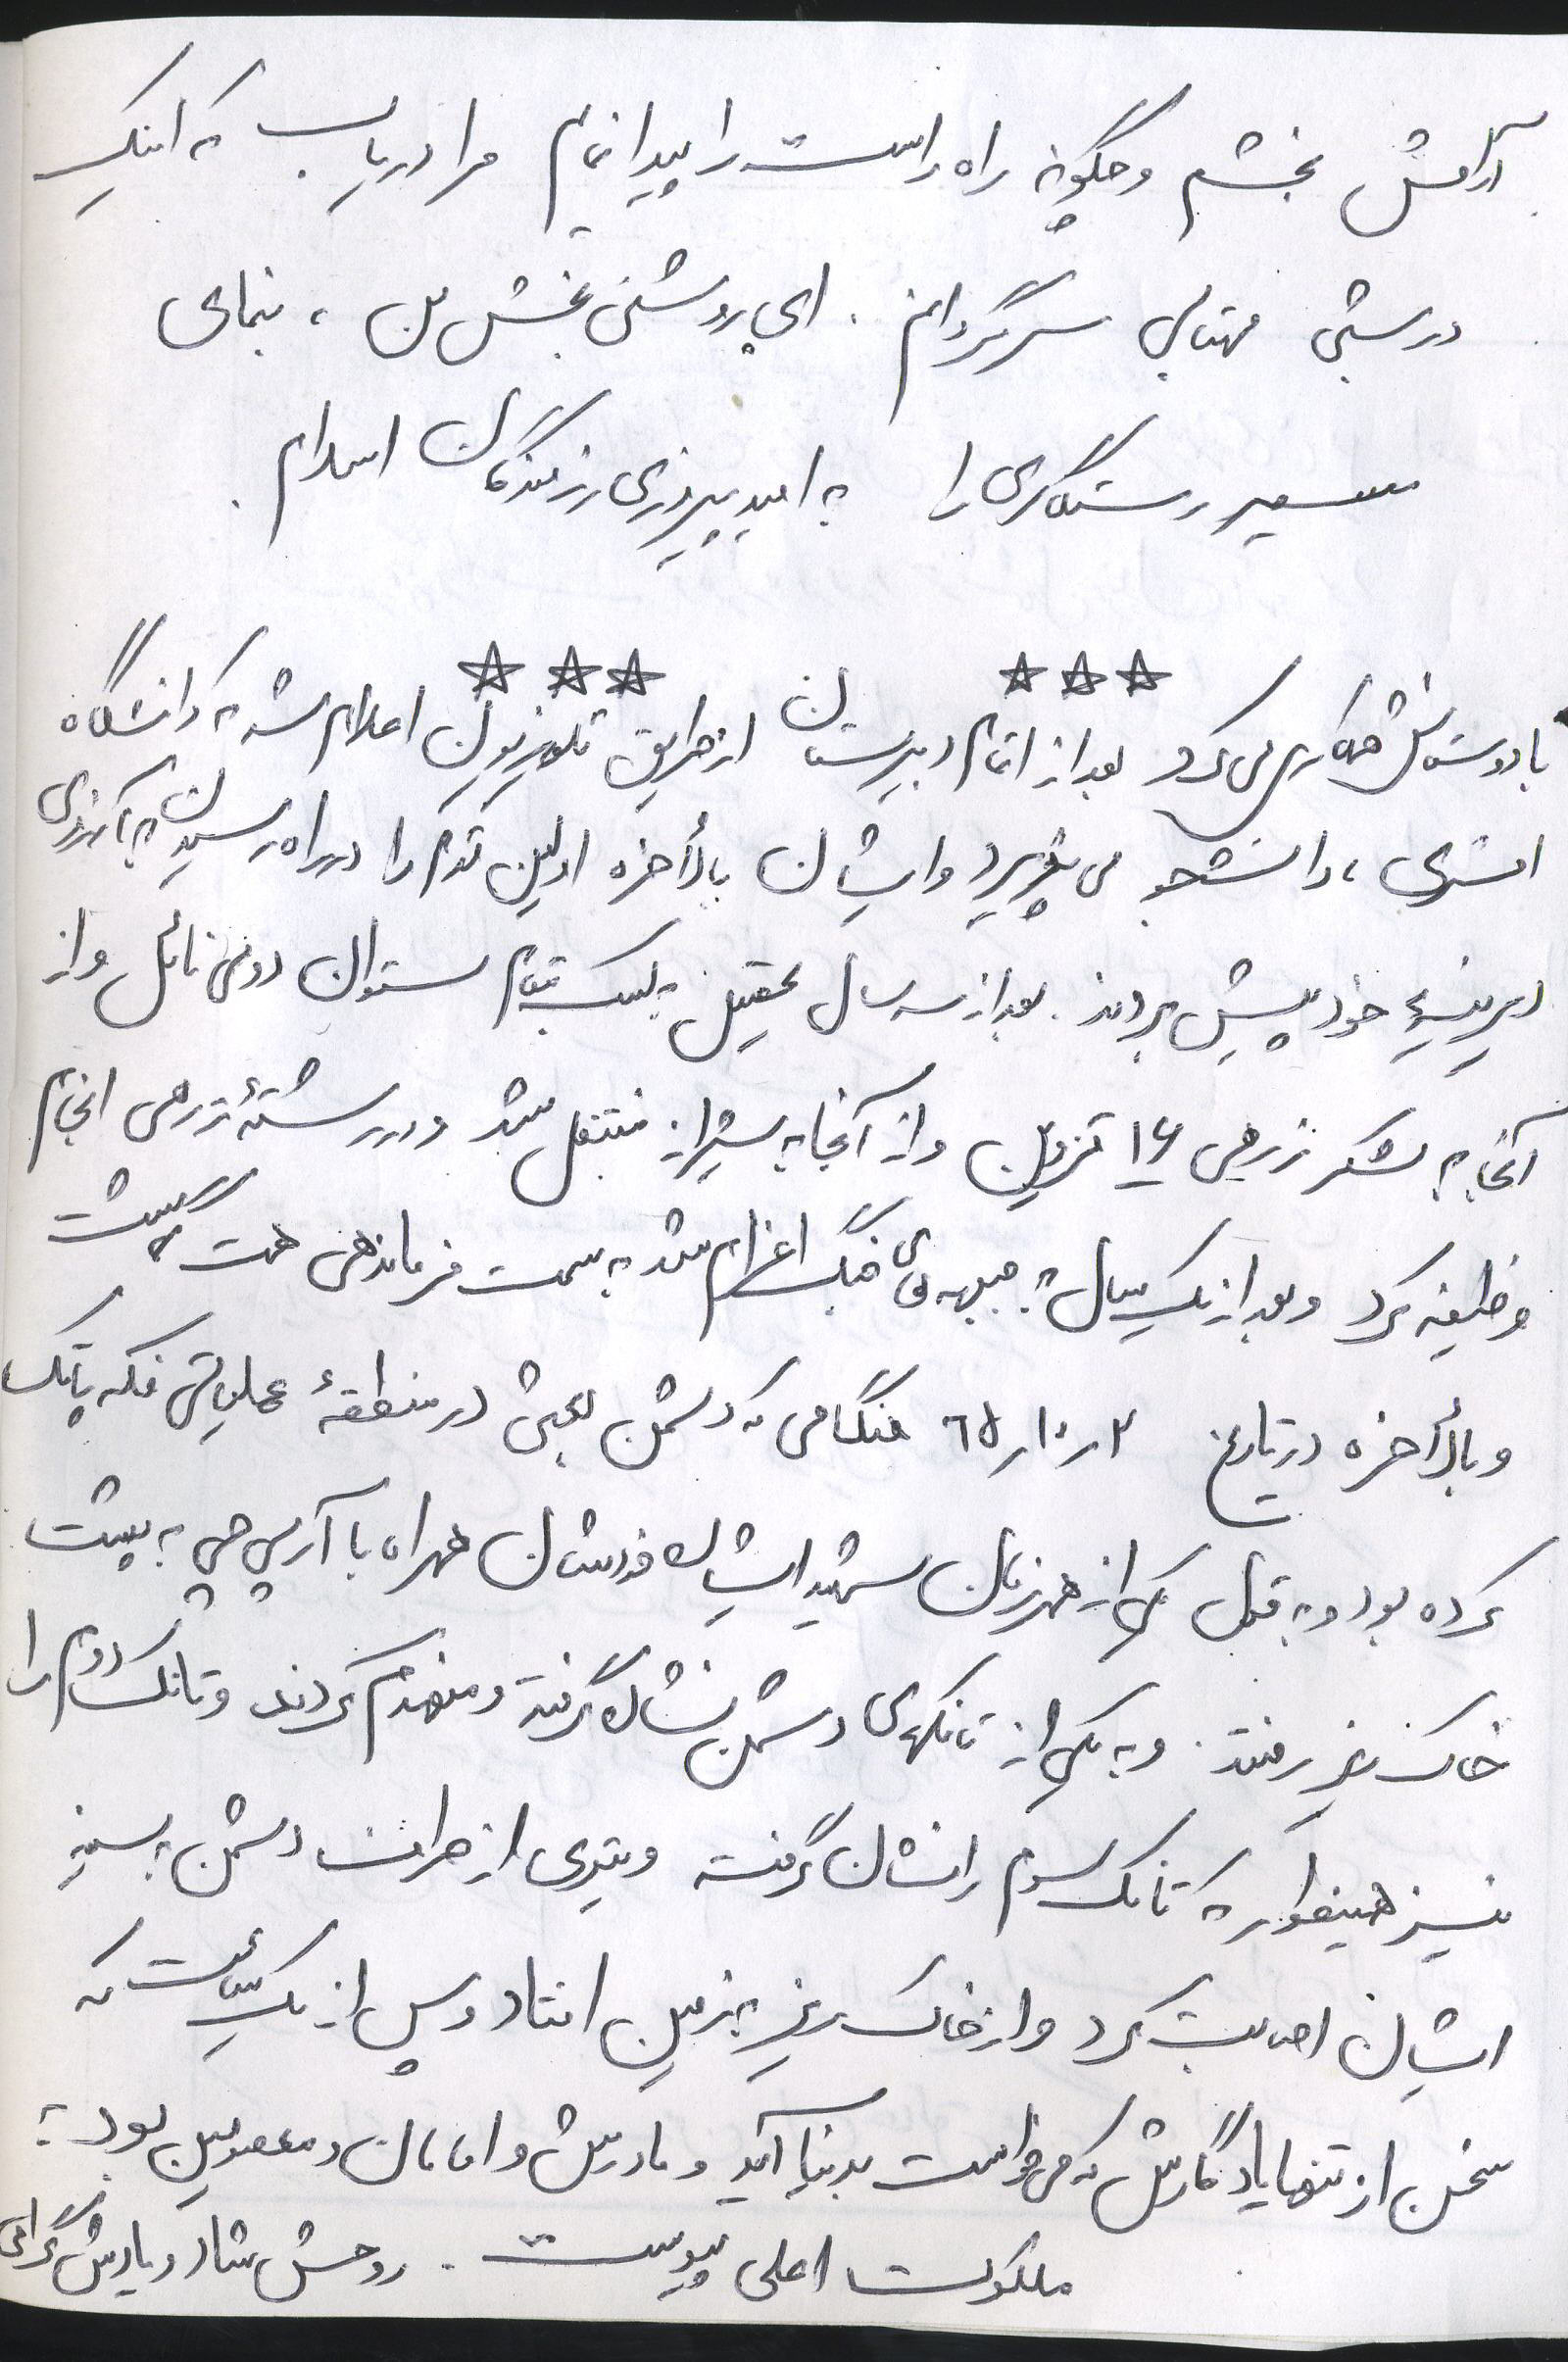 آرامش بخشم و چگونه راه راست را پیدا نمایم مرا دریاب که اینک
در شبی مهتابی سرگردانم . ای روشنی بخش من ، بنمای
مسیر رستگاری را به امید پیروزی رزمندگان اسلام .
☆☆☆ ☆☆☆
با دوستانش همکاری می کرد بعد از اتمام دبیرستان از طریق تلویزیون اعلام شد که دانشگاه
افسری ، دانشجو می پذیرد و ایشان بالأخره اولین قدم را در راه رسیدن به آرزوی
دیرینهٔ خود پیش بردند . بعد از سه سال تحصیل به کسب مقام ستوان دومی نائل و از
آنجا به لشکر زرهی ۱۶ قزوین و از آنجا به شیراز منتقل شد و در رشتهٔ زرهی انجام
وظیفه کرد و بعد از یک سال به جبهه های جنگ اعزام شد به سمت فرماندهی گشت
و بالأخره در تاریخ ۲ر۱۰ر٦٥ هنگامی که دشمن بعثی در منطقهٔ عملیاتی فکه پاتک
کرده بود و به قول یکی از همرزمان شهید ایشان خودشان همراه با آرپی چی به پشت
خاکریز رفتند . و به یکی از تانکهای دشمن نشان گرفته و منهدم کردند و تانک دوم را
نیز همینطور که تانک سوم را نشان گرفته و تیری از طرف دشمن به سینهٔ
ایشان اصابت کرد و از خاکریز به زمین افتاد و پس از یک ساعت که
سخن از تنها یادگارش که می خواست بدنیا آید و مادرش و امامان و معصومین بود به
ملکوت اعلی پیوست . روحش شاد و یادش گرامی